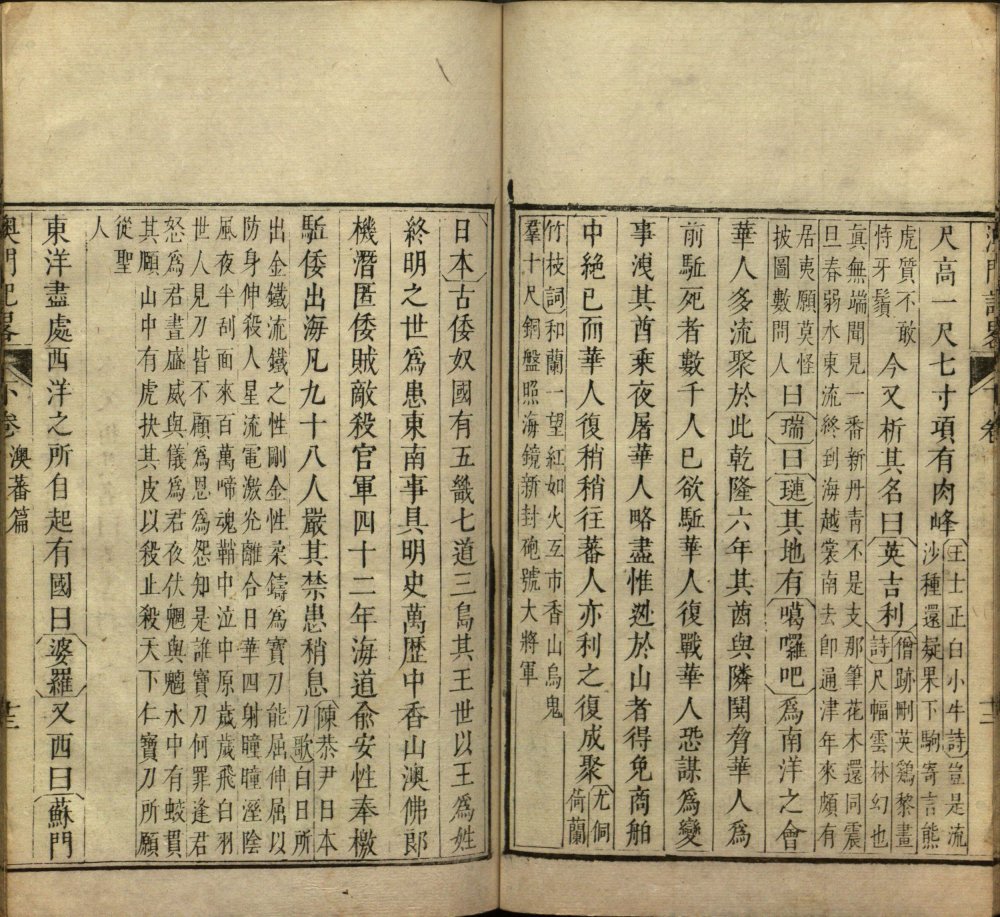 尺高一尺七寸項有肉峰
王士正白小牛詩豈是流
沙種還疑果下駒寄言熊
虎質不敢
恃牙鬚
今又析其名曰英吉利
僧跡刪英鷄黎畫
詩尺幅雲林幻也
眞無端聞見一番新丹靑不是支那筆花木還同震
旦春弱水東流終到海越裳南去卽通津年來頗有
居夷願莫怪
披圖數問人
曰瑞曰璉其地有噶囉吧爲南洋之會
華人多流聚於此乾隆六年其酋與隣鬨脅華人爲
前駈死者數千人已欲駈華人復戰華人恐謀爲變
事洩其酋乘夜屠華人略盡惟迯於山者得免商舶
中絶已而華人復稍稍往蕃人亦利之復成聚
尤侗
荷蘭
竹枝詞和蘭一望紅如火互市香山烏鬼
羣十尺銅盤照海鏡新封砲號大將軍
日本古倭奴國有五畿七道三島其王世以王爲姓
終明之世爲患東南事具明史萬歷中香山澳佛郎
機潛匿倭賊敵殺官軍四十二年海道兪安性奉檄
駈倭出海凡九十八人嚴其禁患稍息
陳恭尹日本
刀歌白日所
出金鐵流鐵之性剛金性柔鑄爲寶刀能屈伸屈以
防身伸殺人星流電激光離合日華四射瞳瞳溼陰
風夜半刮面來百萬啼魂鞘中泣中原歲歲飛白羽
世人見刀皆不顧爲恩爲怨知是誰寶刀何罪逢君
怒爲君晝盛威與儀爲君夜伏魍與魎水中有蛟貫
其頤山中有虎抉其皮以殺止殺天下仁寶刀所願
從聖
人
東洋盡處西洋之所自起有國曰婆羅又西曰蘇門
澳門記畧
下卷
澳蕃篇
廿三